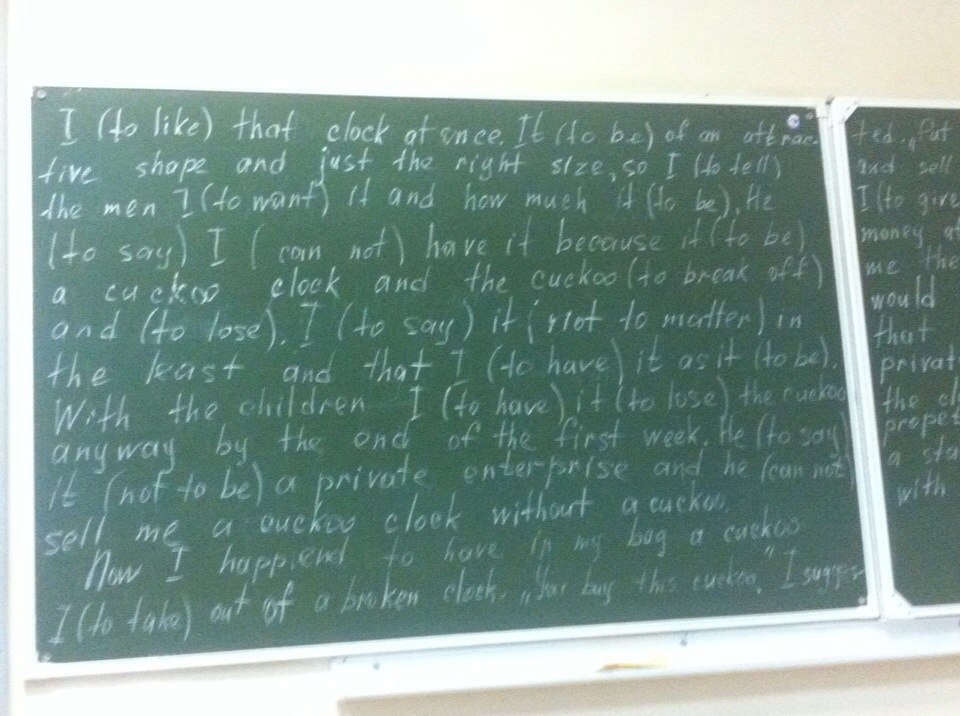 I (to like) that clock at once. It (to be) of an attrac-
tive shape and just the right size, so I (to tell)
the men I (to want) it and how much it (to be). He
(to say) I (can not) have it because it (to be)
a cuckoo clock and the cuckoo (to break off)
and (to lose). I (to say) it (not to matter) in
the least and that I (to have) it as it (to be).
With the children I (to have), it (to lose) the cuckoo
anyway by the end of the first week. He (to say)
it (not to be) a private enterprise and he (can not)
sell me a cuckoo clock without a cuckoo.
Now I happend to have in my bag a cuckoo
I (to take) out of a broken clock. „You buy this cuckoo," I sugges-
ted. „Put
and sell
I (to give
money
me the
would
that
privat
the cl
propet
a sta
with